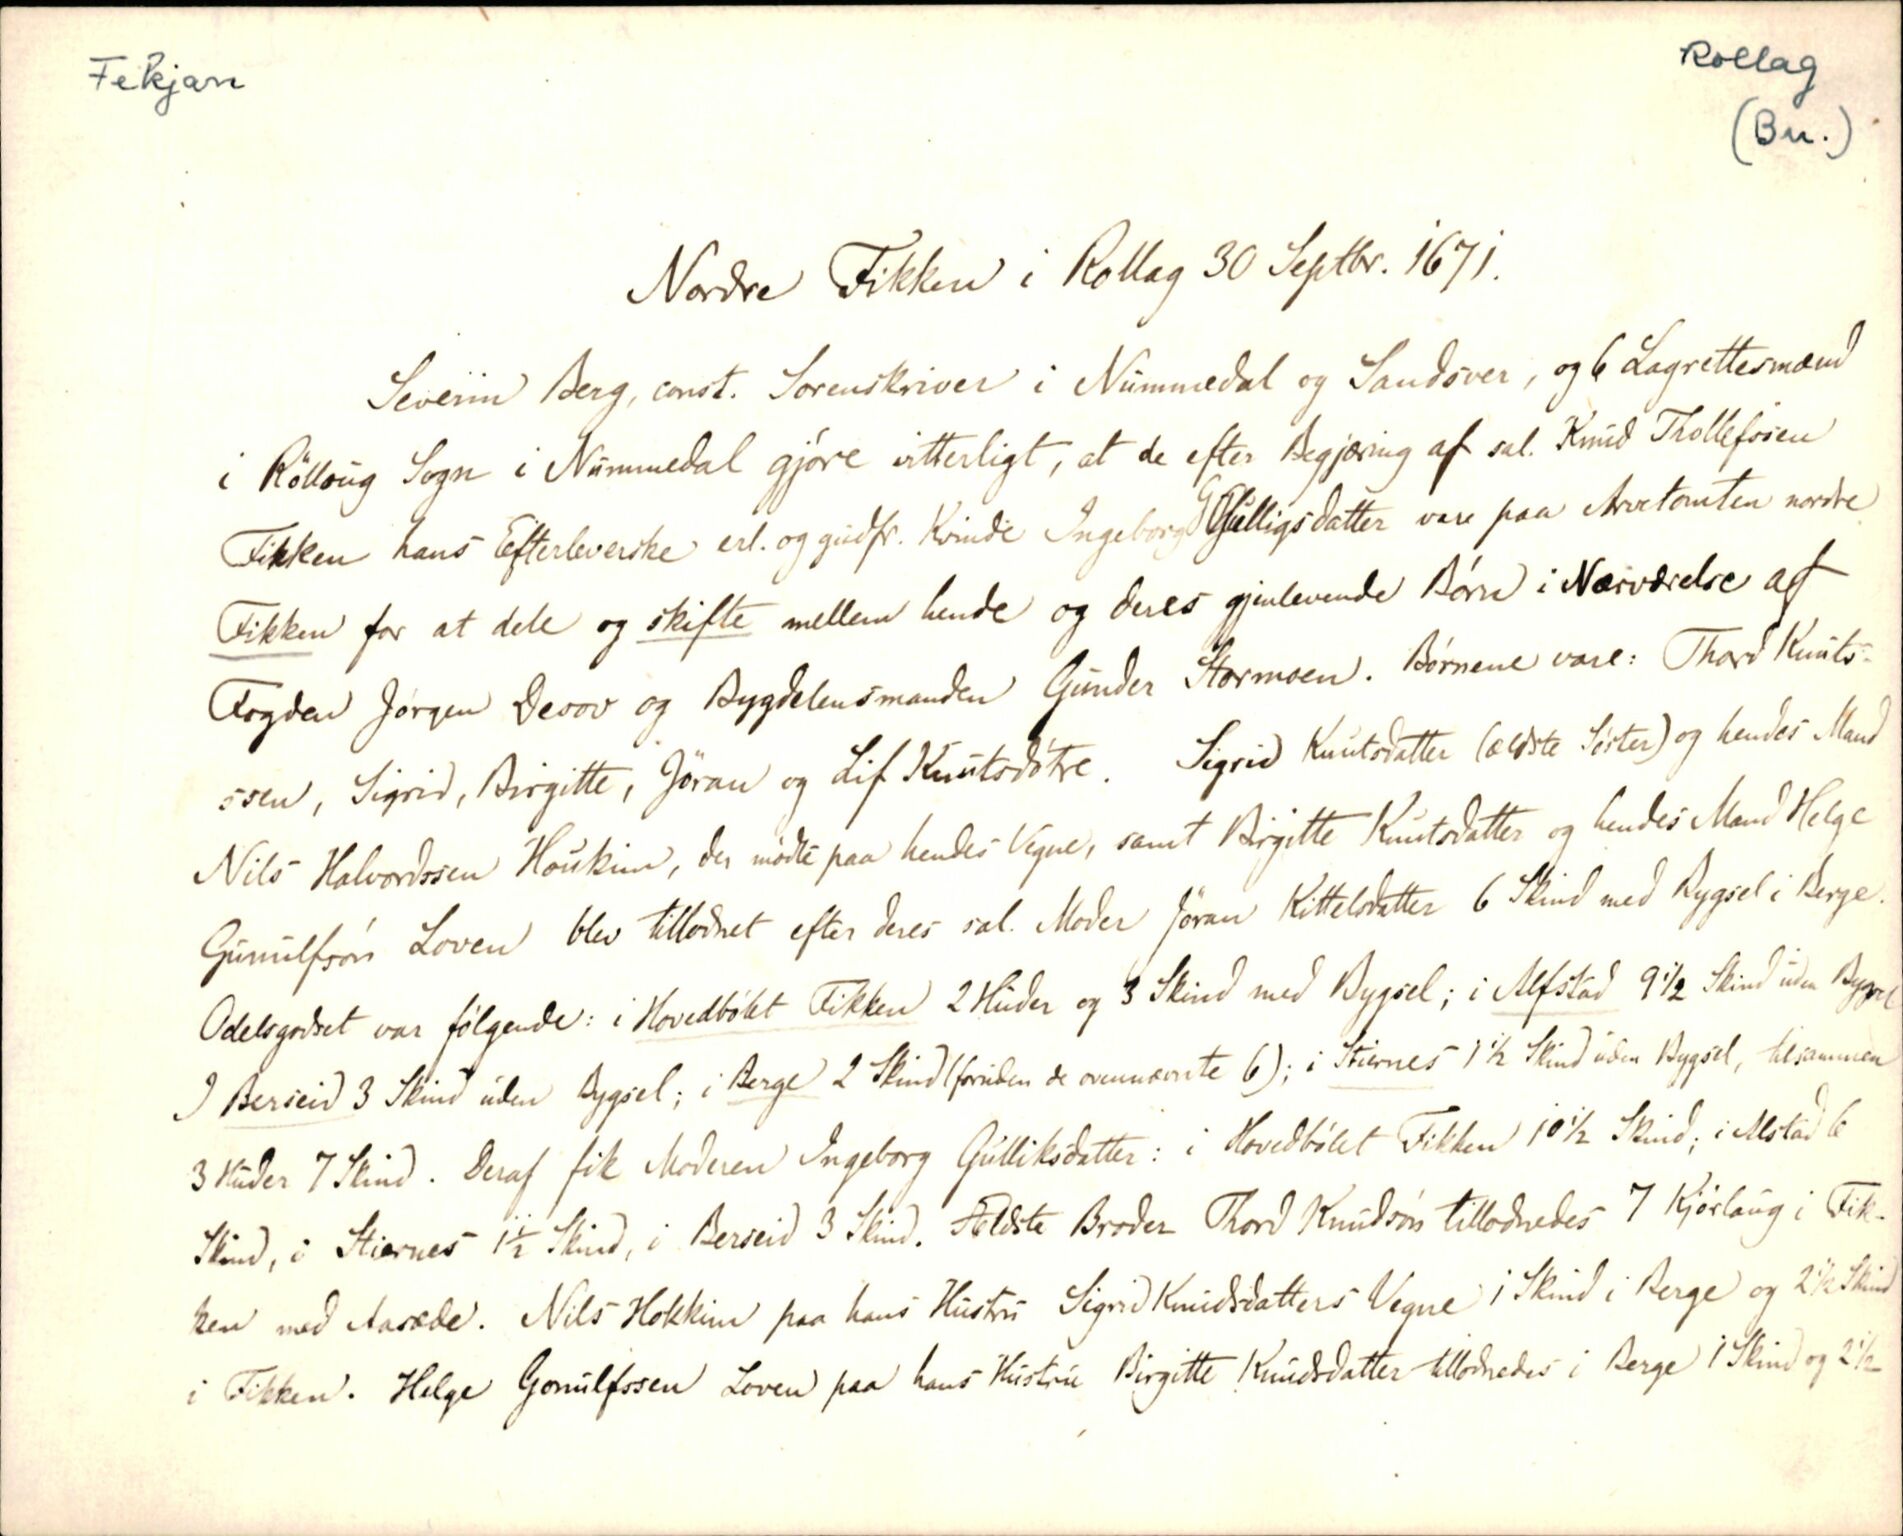 Fekjan
Rollag
(Bu.)
Nordre Fikken i Rollag 30 Septbr. 1671.
Severin Berg, const. Sorenskriver i Nummedal og Sandsver, og 6 Lagrettesmænd
i Rölloug Sogn i Nummedal gjöre vitterligt, at de efter Begjæring af sal. Knud Thollefssen
Fikken hans Efterleverske erl. og gudfr. Kvinde Ingeborg Gulligsdatter vare paa Arvetomten nordre
Fikken for at dele og skifte mellem hende og deres gjenlevende Börn i Nærværelse af
Fogden Jörgen Desov og Bygdelensmanden Gunder Stormoen. Börnene vare: Thord Knuts-
ssen, Sigrid, Birgitte, Jöran og Lif Knutsdötre. Sigrid Knutsdatter (ældste Söster) og hendes Mand
Nils Halvordssen Houkim, der mödte paa hendes Vegne, samt Birgitte Knutsdatter og hendes Mand Helge
Gunulfsön Loven blev tillodnet efter deres sal. Moder Jöran Kittelsdatter 6 Skind med Bygsel i Berge.
Odelsgodset var följende: i Hovedbölet Fikken 2 Huder og 3 Skind med Bygsel; i Alfstad 9 1/2 Skind uden Bygsel
I Berseid 3 Skind uden Bygsel; i Berge 2 Skind (foruden de ovennævnte 6); i Stiernes 1 1/2 Skind uden Bygsel, tilsammen
3 Huder 7 Skind. Deraf fik Moderen Ingeborg Gulliksdatter: i Hovedbölet Fikken 10 1/2 Skind; i Alstad 6
Skind, i Stiernes 1 1/2 Skind, i Berseid 3 Skind. Ældste Broder Thord Knudsön tillodnedes 7 Kjörlaug i Fik-
ken med Aasæde. Nils Hokkim paa hans Hustru Sigrid Knudsdatters Vegne 1 Skind i Berge og 2 1/2 Skind
i Fikken. Helge Gonulfssen Loven paa hans Hustrue Birgitte Knudsdatter tillodnedes i Berge 1 Skind og 2 1/2